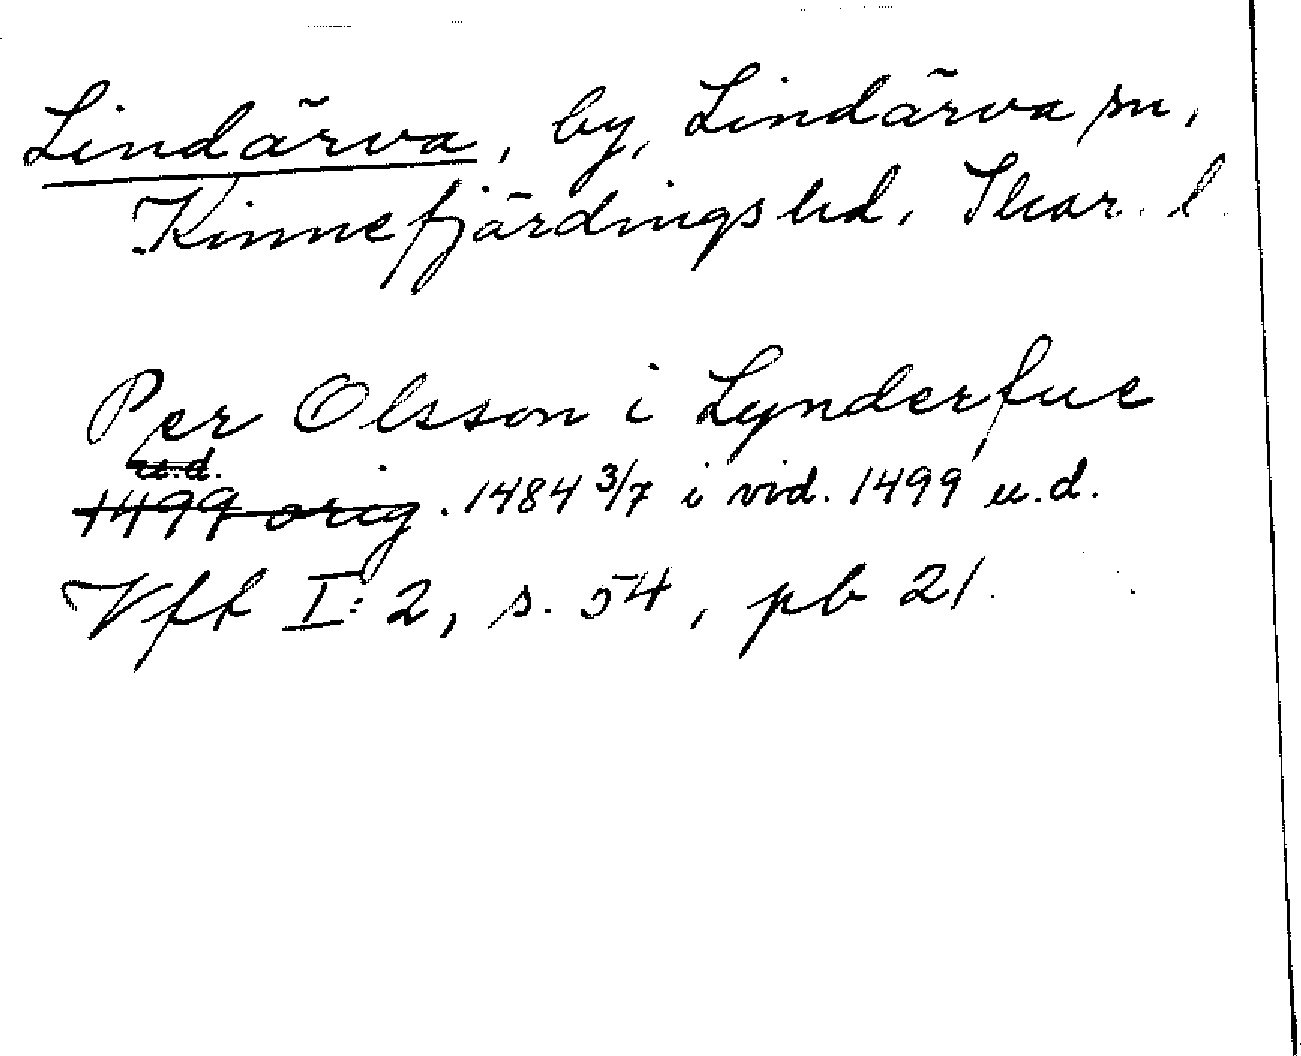 Lindärva, by, Lindärva sn,
Kinnefjärdings hd, Skar. l.
Per Olsson i Lynderfue
u.d.
1499 orig. 1484 3/7 i vid. 1499 u.d.
Vff I:2, s. 54, pb 21.